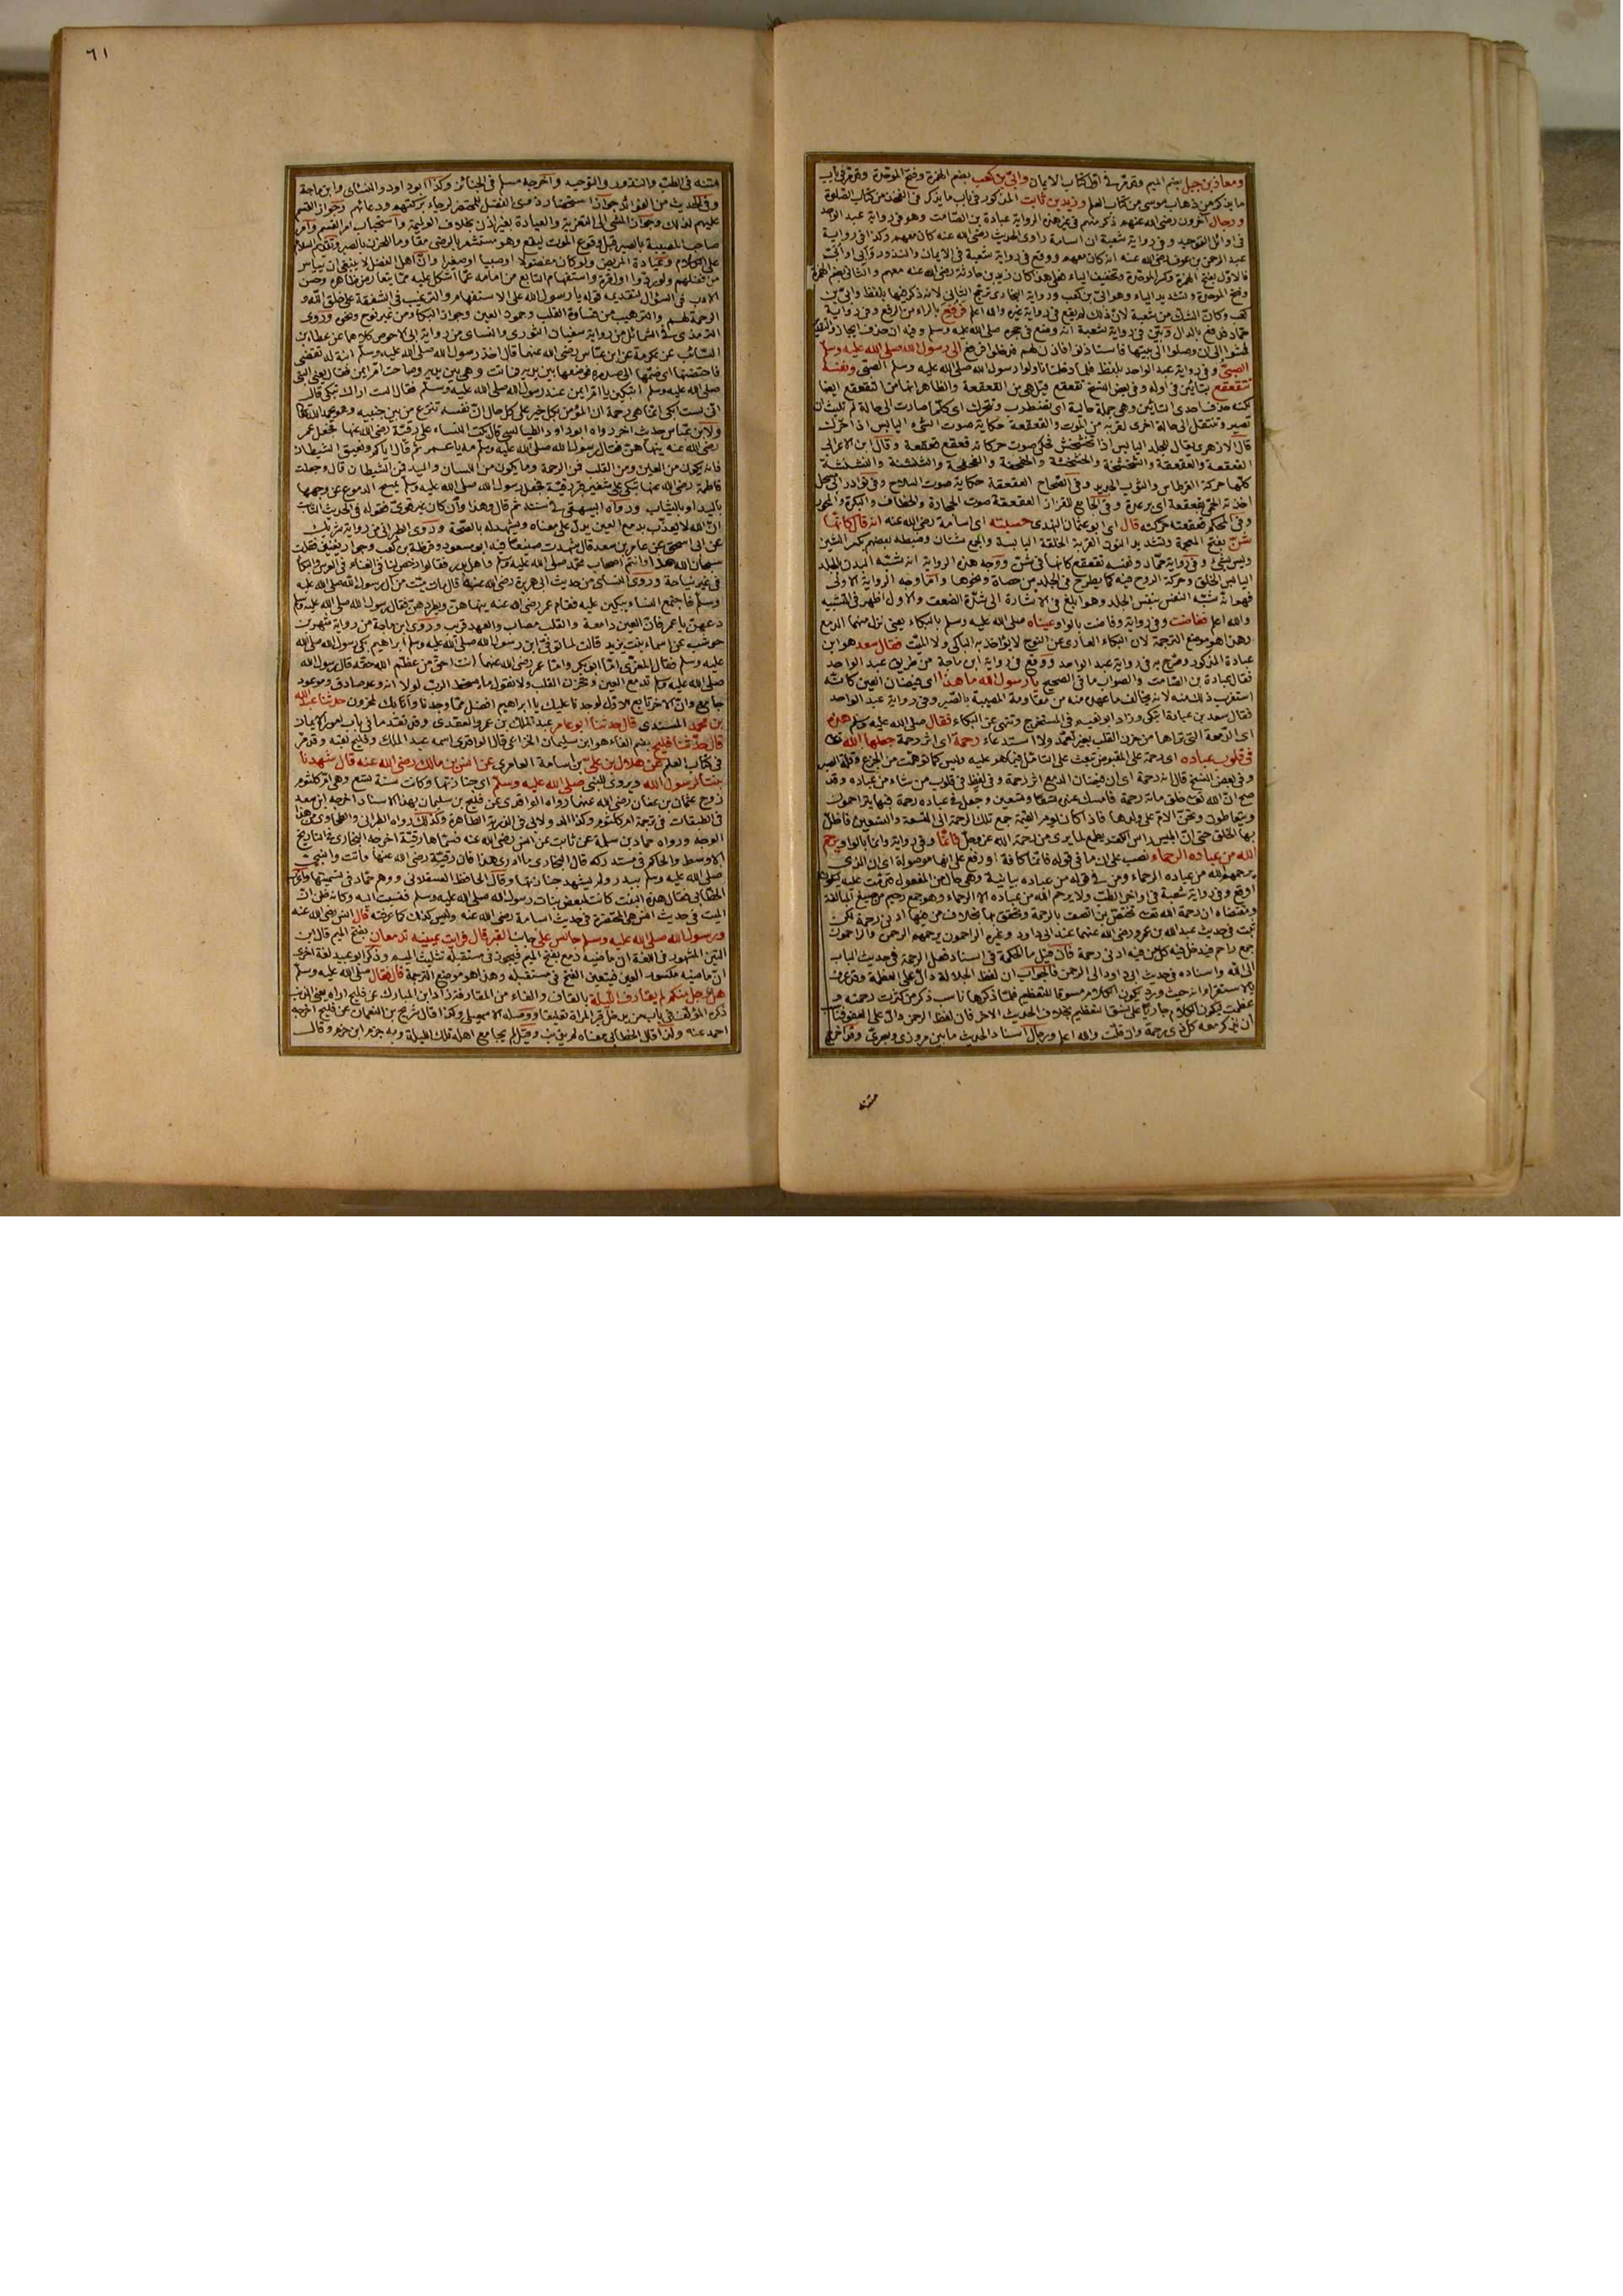 ومعاذ بن جبل بضم الميم وقد مر في اول كتاب الايمان وابيّ بن كعب بضم الهمزة وفتح الموحدة وقد مر في باب
ما يذكر من ذهاب موسى من كتاب العلم وزيد بن ثابت المذكور في باب ما يذكر في الفخذ من كتاب الصلوة
ورجال آخرون رضي الله عنهم ذكر منهم في غير هذه الرواية عبادة بن الصامت وهو في رواية عبد الواحد
في اوائل التوحيد وفي رواية شعبة ان اسامة راوي الحديث رضي الله عنه كان معهم وكذا في رواية
عبد الرحمن بن عوف رضي الله عنه انه كان معهم ووقع في رواية شعبة في الايمان والنذور وابي او ابيّ
فالاول بفتح الهمزة وكسر الموحدة وتخفيف الياء فعلى هذا كان زيد بن حارثة رضي الله عنه معهم والثاني بضم الهمزة
وفتح الموحدة وتشديد الياء وهو ابيّ بن كعب ورواية البخاري ترجح الثاني لانه ذكر فيها بلفظ وابيّ بن
كعب وكان الشك من شعبة لان ذلك لم يقع في رواية غيره والله اعلم فرفع بالراء من الرفع وفي رواية
حماد فدفع بالدال وبيّن في رواية شعبة انه وضع في حجره صلى الله عليه وسلم وفيه ان حذف ايجاز والتقدير
فمشوا الى ان وصلوا الى بيتها فاستاذنوا فاذن لهم فدخلوا فرفع الى رسول الله صلى الله عليه وسلم
الصبيّ وفي رواية عبد الواحد بلفظ فلما دخلنا ناولوا رسول الله صلى الله عليه وسلم الصبي ونفسه
تتقعقع بتائين في اوله وفي بعض النسخ تقعقع
لكنه حذف احدى التائين وهي جملة حالية اى تضطرب وتتحرك اى كلما صارت الى حالة لم تلبث ان
تصير وتنتقل الى حالة اخرى لقربه من الموت والقعقعة حكاية صوت الشيء اليابس اذا حرك
قال الازهري يقال للجلد اليابس اذا تخشخش فحكى صوت حركاته قعقع قعقعة وقال ابن الاعرابي
القعقعة والعقعقة والشخشخة والخشخشة
كلها حركة القرطاس والثوب الجديد وفي الصحاح القعقعة حكاية صوت السلاح وفي نوادر ابي مسحل
اخذته الحمى بقعقعة اى برعدة وفي الجامع للقزاز القعقعة صوت الحجارة والخطاف والبكرة والمحور
وفي المحكم قعقعته حركته قال اى ابو عثمان النهدي حسبته اى اسامة رضي الله عنه انه قال كانها
شنّ بفتح المعجمة وتشديد النون القربة الخلقة اليابسة والجمع شنان وضبطه بعضهم بكسر الشين
وليس بشئ وفي رواية حماد ونفسه تقعقع كانها في شن ووجه هذه الرواية انه شبه البدن بالجلد
اليابس الخلق وحركة الروح فيه كما يطرح في الجلد من حصاة ونحوها واما وجه الرواية الاولى
فهو انه شبه النفس بنفس الجلد وهو ابلغ في الاشارة الى شدة الضعف والاول اظهر في التشبيه
والله اعلم ففاضت وفي رواية وفاضت بالواو عيناه صلى الله عليه وسلم بالبكاء يعني نزل منهما الدمع
وهذا هو موضع الترجمة لان البكاء العاري عن النوح لا يؤاخذ به الباكي ولا الميت فقال سعد هو ابن
عبادة المذكور وصرح به في رواية عبد الواحد ووقع في رواية ابن ماجة من طريق عبد الواحد
فقال عبادة بن الصامت والصواب ما في الصحيح يا رسول الله ما هذا اى فيضان العين كانه
استغرب ذلك منه لانه يخالف ما عهده منه من مقاومة المصيبة بالصبر وفي رواية عبد الواحد
فقال سعد بن عبادة اتبكي وزاد ابو نعيم في المستخرج وتنهى عن البكاء فقال صلى الله عليه وسلم هذه
اى الدمعة التي تراها من حزن القلب بغير تعمد ولا استدعاء رحمة اى اثر رحمة جعلها الله تعالى
في قلوب عباده اى رحمة على المقبوض تبعث على التامل فيما هو عليه وليس كما توهمت من الجزع وقلة الصبر
وفي بعض النسخ قال انه رحمة اى ان فيضان الدمع اثر رحمة وفي لفظ في قلوب من شاء من عباده وقد
صح ان الله تعالى خلق مائة رحمة فامسك عنده تسعا وتسعين وجعل في عباده رحمة فبها يتراحمون
ويتعاطفون وتحن الام على ولدها فاذا كان يوم القيمة جمع تلك الرحمة الى التسعة والتسعين فاظل
بها الخلق حتى ان ابليس راس الكفر يطمع لما يرى من رحمة الله عز وجل فانما وفي رواية وانما بالواو يرحم
الله من عباده الرحماء نصب على ان ما في قوله فانما كافة او رفع على انها موصولة اى ان الذي
يرحمهم الله من عباده الرحماء ومن في قوله من عباده بيانية وهي حال من المفعول قدمت عليه ليكون
اوقع وفي رواية شعبة في اواخر الطب ولا يرحم الله من عباده الا الرحماء وهو جمع رحيم من صيغ المبالغة
ومقتضاه ان رحمة الله تعالى تختص بمن اتصف بالرحمة وتحقق بها بخلاف من فيها ادنى رحمة لكن
ثبت في حديث عبد الله بن عمرو رضي الله عنهما عند ابي داود وغيره الراحمون يرحمهم الرحمن والراحمون
جمع راحم فيدخل فيه كل من فيه ادنى رحمة فان قيل ما الحكمة في اسناد فعل الرحمة في حديث الباب
الى الله واسناده في حديث ابي داود الى الرحمن فالجواب ان لفظ الجلالة دال على العظمة وقد عرف
بالاستقراء انه حيث ورد يكون الكلام مسوقا للتعظيم فلما ذكرها ناسب ذكر من كثرت رحمته و
عظمت ليكون الكلام جاريا على نسق التعظيم بخلاف الحديث الاخر فان لفظ الرحمن دال على العفو فناسب
ان يذكر معه كل ذي رحمة وان قلت والله اعلم ورجال اسناد الحديث ما بين مروزي وبصري وقد اخرج
متنه
٦١
متنه في الطب والنذور والتوحيد واخرجه مسلم في الجنائز وكذا ابو داود والنسائي وابن ماجة
وفي الحديث من الفوائد جواز استحضار ذوي الفضل للمحتضر لرجاء بركتهم ودعائهم وجواز القسم
عليهم لذلك وجواز المشي الى التعزية والعيادة بغير اذن بخلاف الوليمة واستحباب ابرار القسم وامر
صاحب المصيبة بالصبر قبل وقوع الموت ليقع وهو مستشعر بالرضى مقاوما للحزن بالصبر وتقديم السلام
على الكلام وعيادة المريض ولو كان مفضولا او صبيا او صغيرا وان اهل الفضل لا ينبغي ان ييأس
من فضلهم ولو ردوا اول مرة واستفهام التابع من امامه عما اشكل عليه مما يتعارض ظاهره وحسن
الادب في السؤال لتقديمه قوله يا رسول الله على الاستفهام والترغيب في الشفقة على خلق الله و
الرحمة لهم والترهيب من قساوة القلب وجمود العين وجواز البكاء من غير نوح ونحوه وروى
الترمذي في الشمائل من رواية سفيان الثوري والنسائي من رواية ابي الاحوص كلاهما عن عطاء بن
السائب عن عكرمة عن ابن عباس رضي الله عنهما قال اخذ رسول الله صلى الله عليه وسلم ابنة له تقضي
فاحتضنها اى ضمها الى صدره فوضعها بين يديه فماتت وهي بين يديه وصاحت ام ايمن فقال يعني النبي
صلى الله عليه وسلم اتبكين يا ام ايمن عند رسول الله صلى الله عليه وسلم فقالت الست اراك تبكي قال
اني لست ابكي انما هي رحمة ان المؤمن بكل خير على كل حال ان نفسه تنزع من بين جنبيه وهو يحمد الله تعالى
ولابن عباس حديث اخر رواه ابو داود الطيالسي قال بكت النساء على رقية رضي الله عنها فجعل عمر
رضي الله عنه ينهاهن فقال رسول الله صلى الله عليه وسلم مه يا عمر ثم قال اياكم ونعيق الشيطان
فانه يكون من العين ومن القلب فمن الرحمة وما يكون من اللسان واليد فمن الشيطان قال وجعلت
فاطمة رضي الله عنها تبكي على شفير قبر رقية فجعل رسول الله صلى الله عليه وسلم يمسح الدموع عن وجهها
باليد او بالثياب ورواه البيهقي في سننه ثم قال وهذا وان كان غير قوي فقوله في الحديث الثابت
ان الله لا يعذب بدمع العين يدل على معناه ويشهد له بالصحة وروى الطبراني من رواية شريك
عن ابي اسحق عن عامر بن سعد قال شهدت صنيعا فيه ابو مسعود وقرظة بن كعب وجوار يغنين فقلت
سبحان الله هذا وانتم اصحاب محمد صلى الله عليه وسلم واهل بدر فقالوا رخص لنا في الغناء في العرس والبكاء
في غير نياحة وروى النسائي من حديث ابي هريرة رضي الله عنه قال مات ميت من آل رسول الله صلى الله عليه
وسلم فاجتمع النساء يبكين عليه فقام عمر رضي الله عنه ينهاهن ويطردهن فقال رسول الله صلى الله عليه وسلم
دعهن يا عمر فان العين دامعة والقلب مصاب والعهد قريب وروى ابن ماجة من رواية شهر بن
حوشب عن اسماء بنت يزيد قالت لما توفي ابن رسول الله صلى الله عليه وسلم ابراهيم بكى رسول الله صلى الله
عليه وسلم فقال المعزي اما ابو بكر واما عمر رضي الله عنهما انت احق من عظم الله حقه قال رسول الله
صلى الله عليه وسلم تدمع العين ويحزن القلب ولا نقول ما يسخط الرب لولا انه وعد صادق وموعود
جامع وان الاخر تابع الاول لوجدنا عليك يا ابراهيم افضل مما وجدنا وانا بك لمحزونون حدثنا عبد الله
بن محمد المسندي قال حدثنا ابو عامر عبد الملك بن عمرو العقدي وقد تقدما في باب امور الايمان
قال حدثنا فليح بضم الفاء هو ابن سليمان الخزاعي قال الواقدي اسمه عبد الملك وفليح لقبه وقد مر
في كتاب العلم عن هلال بن علي بن اسامة العامري عن انس بن مالك رضي الله عنه قال شهدنا
بنتا لرسول الله ويروى للنبي صلى الله عليه وسلم اى جنازتها وكانت سنة تسع وهي ام كلثوم
زوج عثمان بن عفان رضي الله عنهما رواه الواقدي عن فليح بن سليمان بهذا الاسناد اخرجه ابن سعد
في الطبقات في ترجمة ام كلثوم وكذا الدولابي في الذرية الطاهرة وكذلك رواه الطبراني والطحاوي من هذا
الوجه ورواه حماد بن سلمة عن ثابت عن انس رضي الله عنه فسماها رقية اخرجه البخاري في التاريخ
الاوسط والحاكم في مستدركه قال البخاري ما ادري ما هذا فان رقية رضي الله عنها ماتت والنبي
صلى الله عليه وسلم ببدر ولم يشهد جنازتها وقال الحافظ العسقلاني ووهم حماد في تسميتها
الخطابي فقال هذه البنت كانت لبعض بنات رسول الله صلى الله عليه وسلم فنسبت اليه وكانه ظن ان
الميت في حديث انس هي المحتضرة في حديث اسامة رضي الله عنه وليس كذلك كما عرفته قال انس رضي الله عنه
ورسول الله صلى الله عليه وسلم جالس على جانب القبر قال فرايت عينيه تدمعان بفتح الميم قال ابن
التين المشهور في اللغة ان ماضيه دمع بفتح الميم فيجوز في مستقبله تثليث الميم وذكر ابو عبيد لغة اخرى
ان ماضيه مكسور العين فيتعين الفتح في مستقبله وهذا هو موضع الترجمة قال فقال صلى الله عليه وسلم
هل رجل منكم لم يقارف الليلة بالقاف والفاء من المقارفة زاد ابن المبارك عن فليح اراه يعني الذنب
ذكره المؤلف في باب من يدخل قبر المراة تعليقا ووصله الاسمعيلي وكذا قال شريح بن النعمان عن فليح اخرجه
احمد عنه ولذا قال الخطابي معناه لم يذنب وقيل لم يجامع اهله تلك الليلة وبه جزم ابن حزم وقال